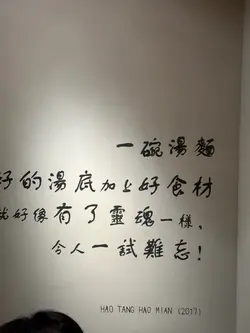 一碗湯麵
好的湯底加上好食材
就好像有了靈魂一樣，
令人一試難忘！
HAO TANG HAO MIAN (2017)